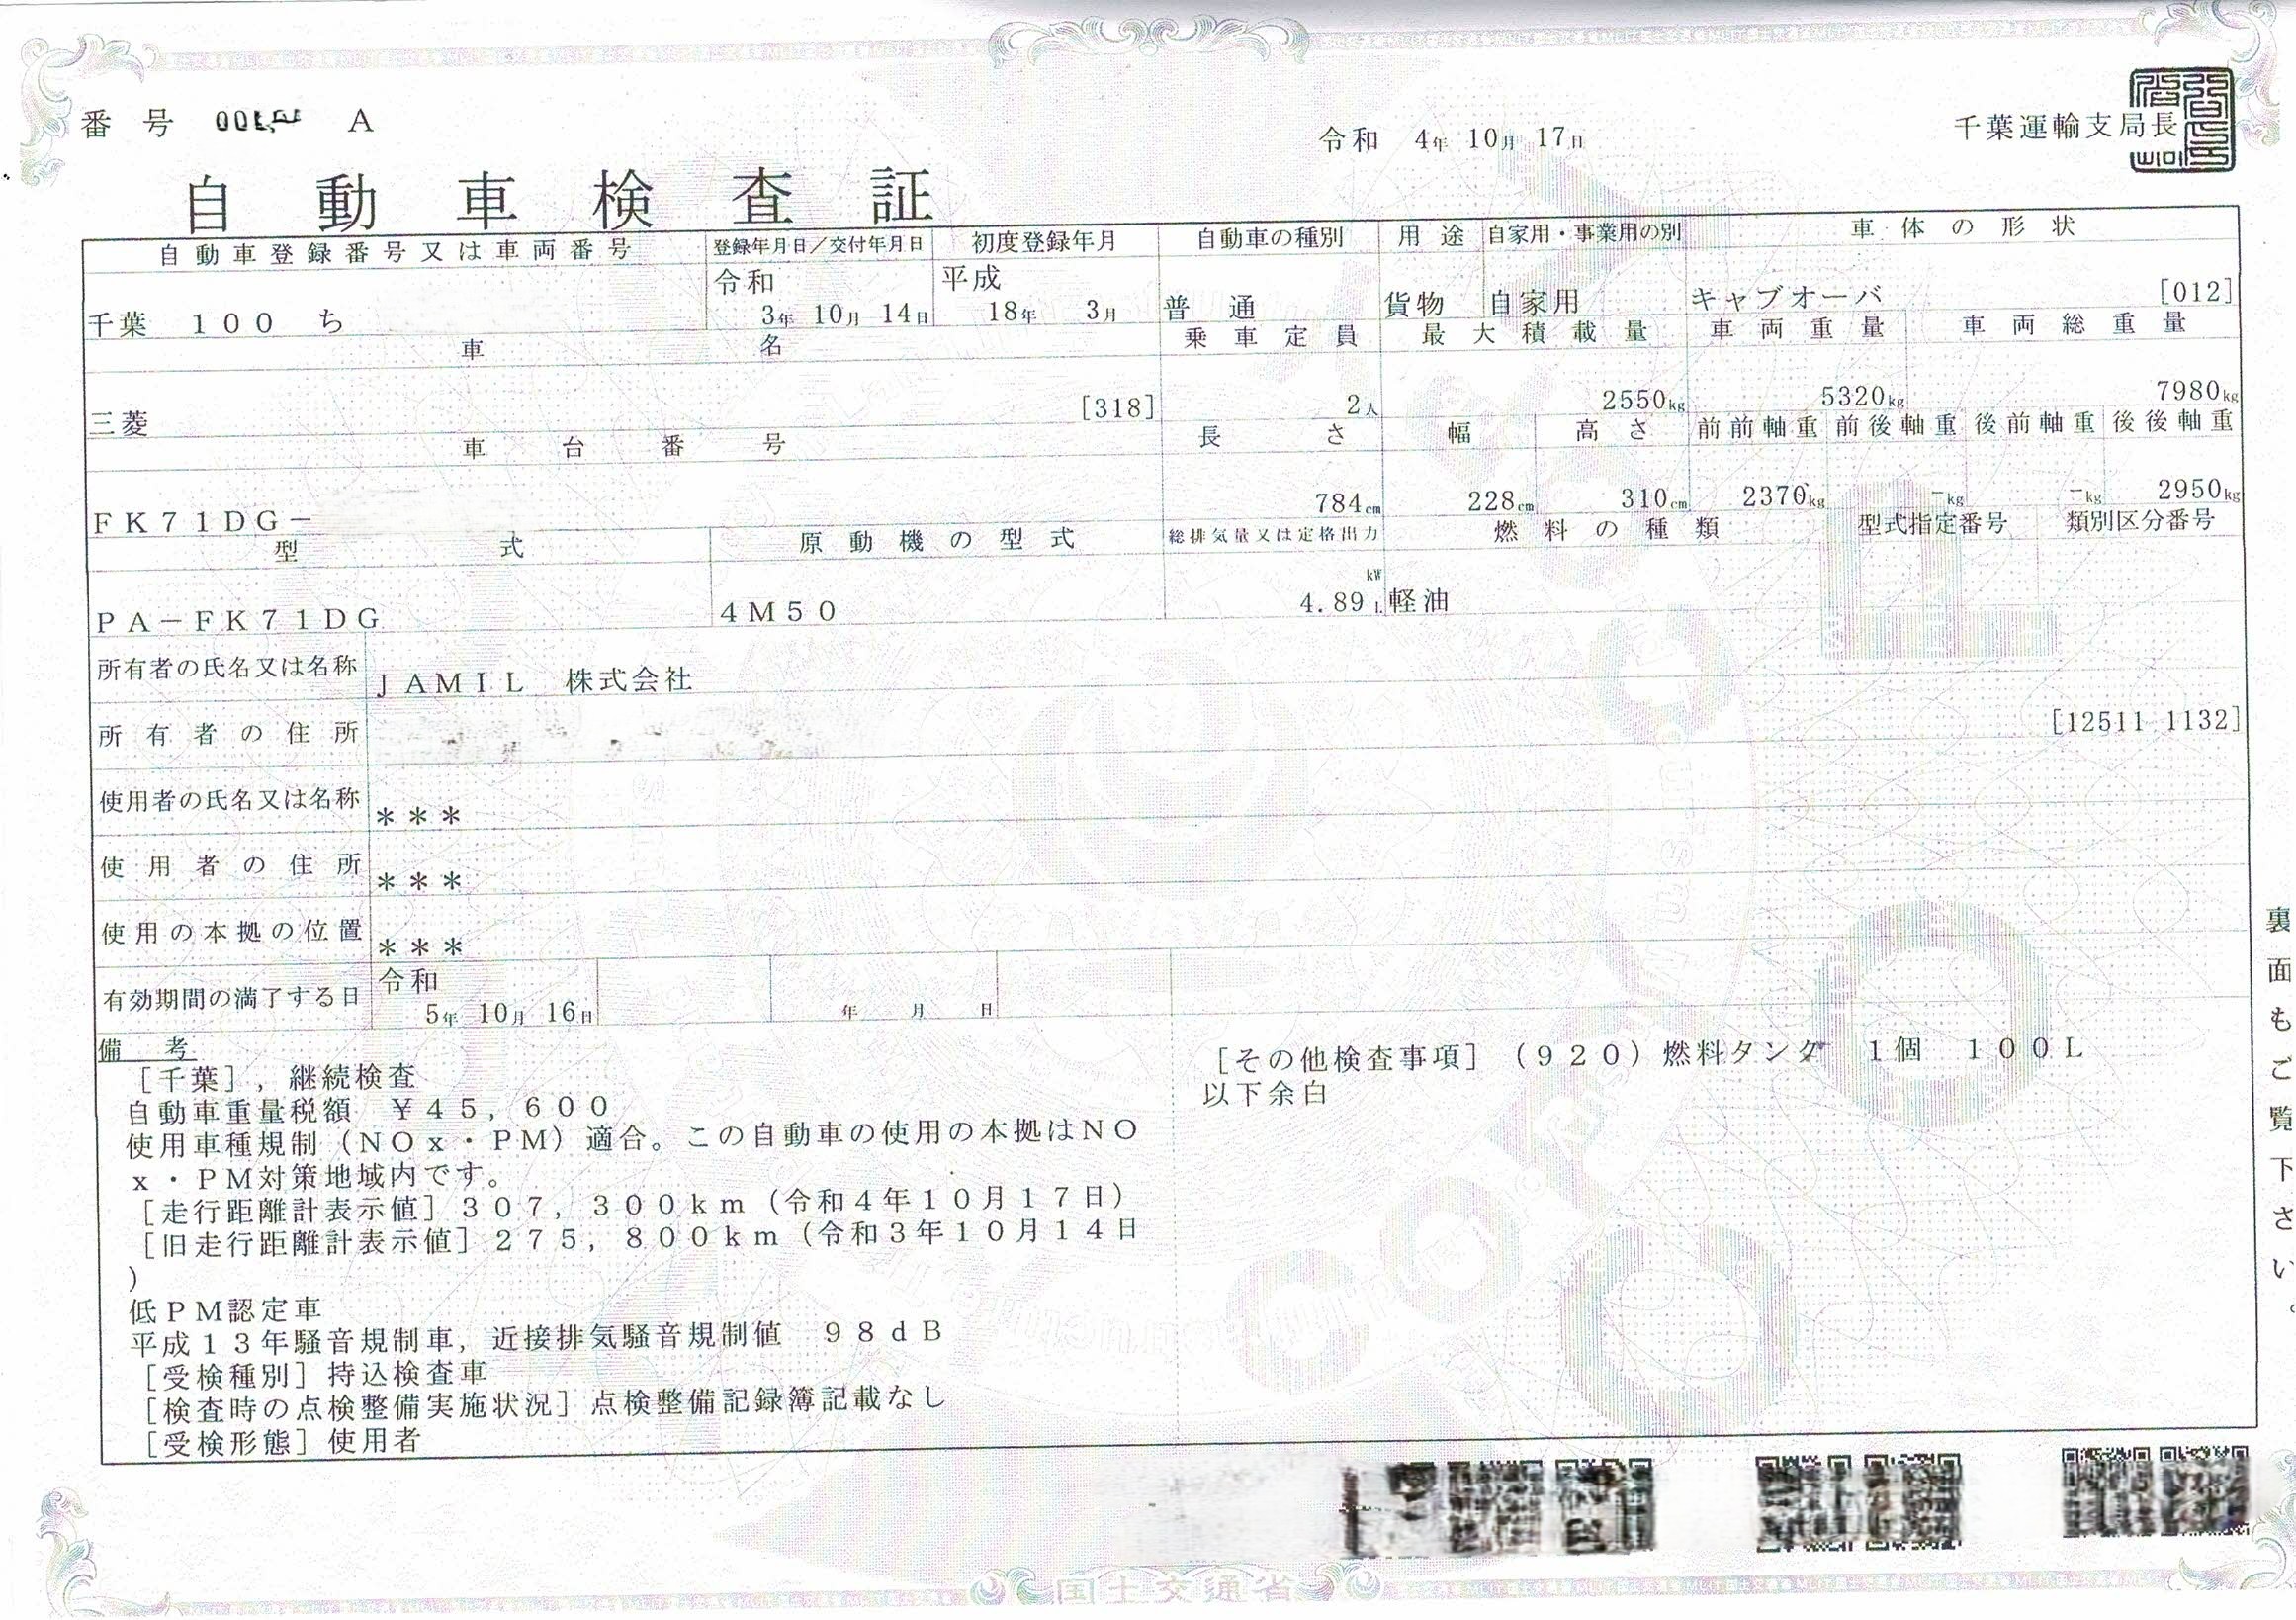 番号 A
令和 4年 10月 17日
千葉運輸支局長
自動車検査証
自動車登録番号又は車両番号 登録年月日／交付年月日 初度登録年月 自動車の種別 用途 自家用・事業用の別 車体の形状
令和 平成
千葉 １００ ち 3年 10月 14日 18年 3月 普通 貨物 自家用 キャブオーバ [012]
車名 乗車定員 最大積載量 車両重量 車両総重量
三菱 [318] 2人 2550kg 5320kg 7980kg
車台番号 長さ 幅 高さ 前前軸重 前後軸重 後前軸重 後後軸重
ＦＫ７１ＤＧ－ 784cm 228cm 310cm 2370kg －kg －kg 2950kg
型式 原動機の型式 総排気量又は定格出力 燃料の種類 型式指定番号 類別区分番号
kW
ＰＡ－ＦＫ７１ＤＧ ４Ｍ５０ 4.89 L 軽油
所有者の氏名又は名称 ＪＡＭＩＬ 株式会社
所有者の住所 [12511 1132]
使用者の氏名又は名称 ＊＊＊
使用者の住所 ＊＊＊
使用の本拠の位置 ＊＊＊
有効期間の満了する日 令和
5年 10月 16日 年 月 日
備考
［千葉］，継続検査
自動車重量税額 ￥４５，６００
使用車種規制（ＮＯｘ・ＰＭ）適合。この自動車の使用の本拠はＮＯ
ｘ・ＰＭ対策地域内です。
［走行距離計表示値］３０７，３００ｋｍ（令和４年１０月１７日）
［旧走行距離計表示値］２７５，８００ｋｍ（令和３年１０月１４日
）
低ＰＭ認定車
平成１３年騒音規制車，近接排気騒音規制値 ９８ｄＢ
［受検種別］持込検査車
［検査時の点検整備実施状況］点検整備記録簿記載なし
［受検形態］使用者
［その他検査事項］（９２０）燃料タンク １個 １００Ｌ
以下余白
裏面もご覧下さい。
国土交通省